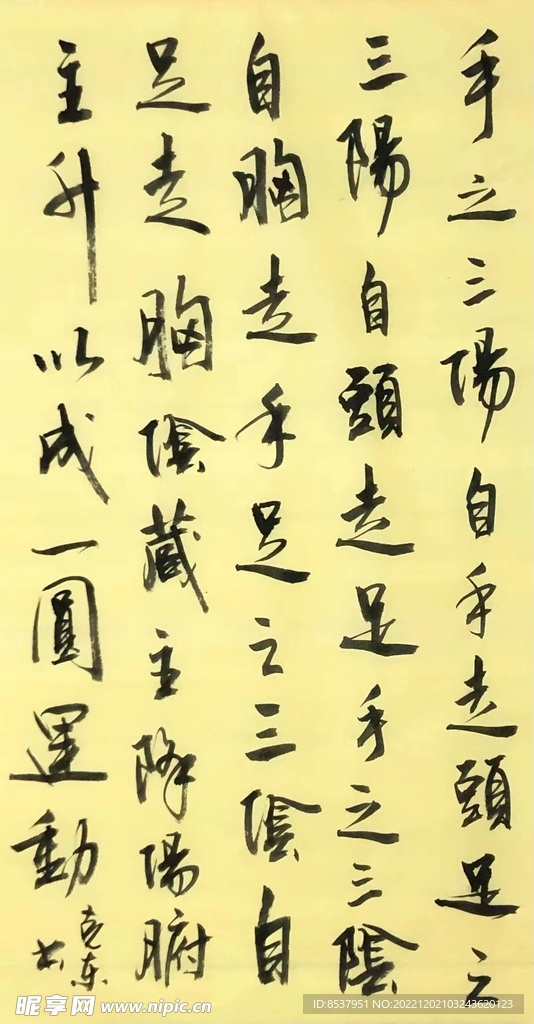 手之三陽自手走頭足之
三陽自頭走足手之三陰
自胸走手足之三陰自
足走胸陰藏主降陽腑
主升以成一圓運動
克东书
昵享网 www.nipic.cn
ID:8537951 NO:20221202103243620123